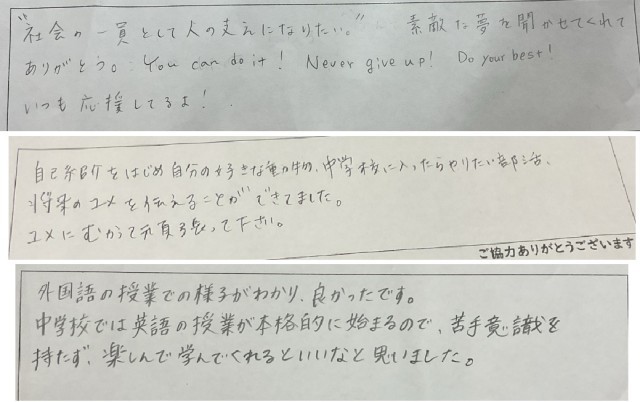 "社会の一員として人の支えになりたい。" 素敵な夢を聞かせてくれて
ありがとう。You can do it! Never give up! Do your best!
いつも応援してるよ!
自己紹介をはじめ自分の好きな動物、中学校に入ったらやりたい部活、
将来のユメを伝えることができてました。
ユメにむかって頑張って下さい。
ご協力ありがとうございます
外国語の授業での様子がわかり、良かったです。
中学校では英語の授業が本格的に始まるので、苦手意識を
持たず、楽しんで学んでくれるといいなと思いました。